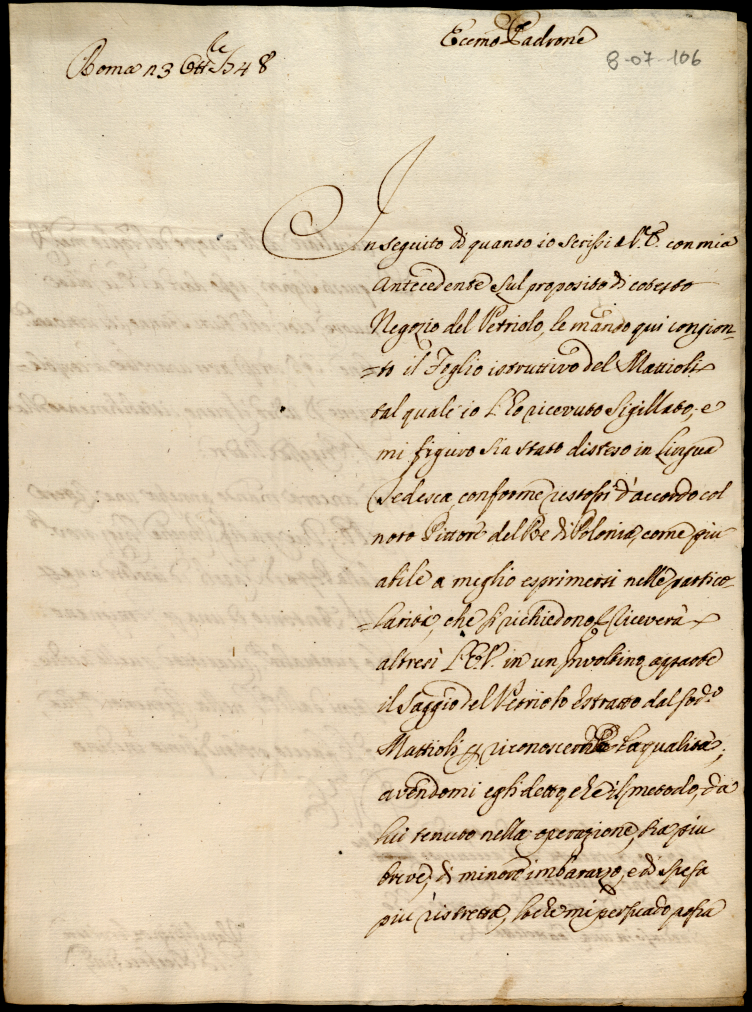 Eccmo Padrone
8-07-106
Roma 23 Ottle 1748
In seguito di quanto io scrissi a V. E. con mia
Antecedente sul proposito di cotesto
Negozio del Vetriolo, le mando qui congion-
=to il Foglio istruttivo del Mattioli
tal quale io l'ho ricevuto Sigillato, e
mi figuro sia stato disteso in Lingua
Tedesca, conforme restossi d'accordo col
noto Pittore del Re di Polonia, come piu
abile a meglio esprimersi nelle partico-
=larità, che si richiedono. Riceverà
altresi l'E. V. in un Involtino apparte
il Saggio del Vetriolo Estratto dal sodo
Mattioli per riconoscerne la qualità;
avendomi egli detto, che il metodo, da
lui tenuto nella operazione, sia piu
breve, di minore imbarazzo, e di spesa
piu ristretta, lo che mi persuado possa